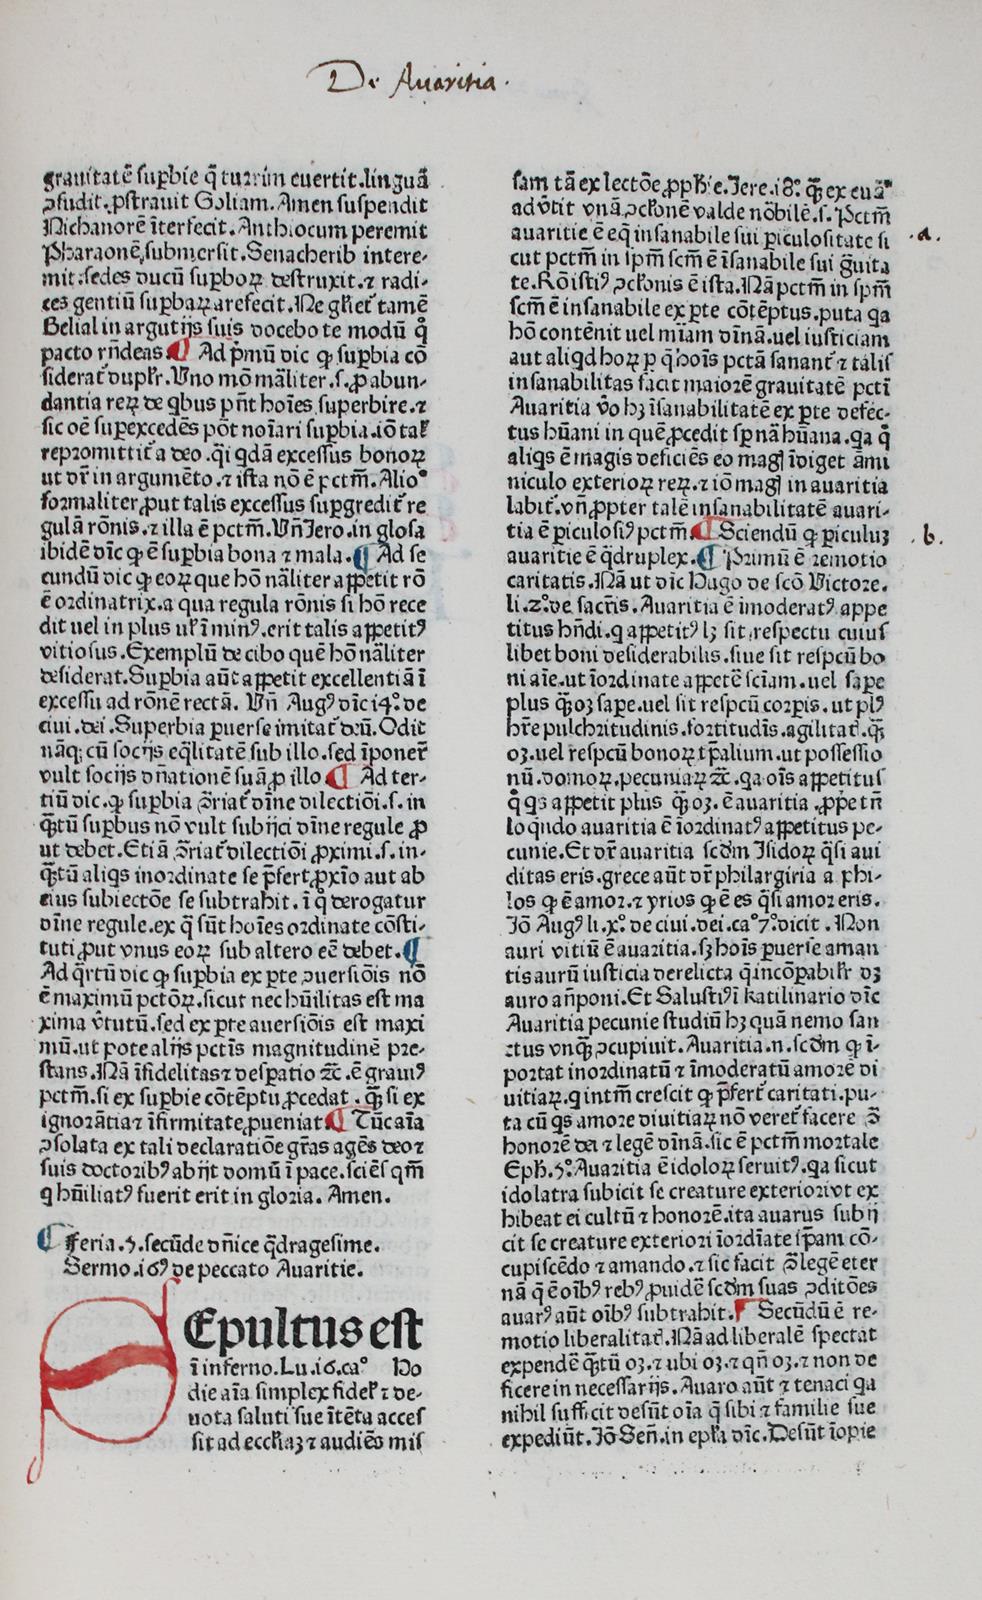 De Auaritia.
grauitatē suꝑbie q̄ turrim euertit.linguā
ↄfudit.ꝓstrauit Goliam.Amen suspendit
Nichanorē īterfecit.Anthiocum peremit
Pharaonē,submersit.Senacherib intere⸗
mit.sedes ducū suꝑboꝝ destruxit.⁊ radi⸗
ces gentiū suꝑbaꝝ arefecit.Ne gl̄iet᷑ tamē
Belial in argutijs suis docebo te modū q̊
pacto rn̄deas ¶ Ad p̄mū dic ꝙ suꝑbia cō
siderat᷑ dupl̓r.Vno mō māliter.s.ꝓ abun⸗
dantia reꝝ de qbus pn̄t hoīes superbire.⁊
sic oē suꝑexcedēs pōt noīari suꝑbia.iō tal̓
repromittit᷑ a deo.q̄i qdā excessus bonoꝝ
ut dr̄ in argumēto.⁊ ista nō ē pctm̄.Alioͦ
formaliter,put talis excessus suꝑgredit᷑ re
gulā rōnis.⁊ illa ē pctm̄.Vn̄ Jero.in glosa
ibidē dīc ꝙ ē suꝑbia bona ⁊ mala.¶ Ad se
cundū dic ꝙ eoꝝ que hō nāliter aꝑpetit rō
ē ordinatrix.a qua regula rōnis si hō rece
dit uel in plus ul̓ ī minꝰ.erit talis appetitꝰ
vitiosus.Exemplū de cibo quē hō nāliter
desiderat.Suꝑbia aūt appetit excellentiā ī
excessu ad rōnē rectā. Vn̄ Augꝰ dīc 14ͦ.de
ciui.dei.Superbia ꝑuerse imitat᷑ dm̄.Odit
nāq; cū socijs eq̄litatē sub illo.sed īponer̄
vult socijs dn̄ationē suā ꝓ illo ¶ Ad ter⸗
tiū dic.ꝙ suꝑbia ↄ̄riat᷑ dīne dilectiōi.s.in
q̄ꝫtū suꝑbus nō vult subijci dīne regule ꝓ
ut debet.Etiā ↄ̄riat᷑ dilectiōi ꝓximi.s.in⸗
q̄ꝫtū aliqs inordinate se p̄fert ꝓxīo aut ab
eius subiectōe se subtrahit.ī q̊ derogatur
dīne regule.ex q̄ sūt hoīes ordinate cōsti⸗
tuti,put vnus eoꝝ sub altero eē debet.¶
Ad q̄rtū dic ꝙ suꝑbia ex ꝑte ↄuersiōis nō
ē maximū pctōꝝ.sicut nec hūilitas est ma
xima v̓tutū.sed ex ꝑte auersiōis est maxi
mū.ut pote alijs pctīs magnitudinē pre⸗
stans.Nā īfidelitas ⁊ desꝑatio ⁊c.ē grauiꝰ
pctm̄.si ex suꝑbie cōtēptu ꝓcedat.q̄ꝫ si ex
ignorātia ⁊ īfirmitate ꝓueniat ¶ Tūc aīa
ↄsolata ex tali declaratiōe gr̄as agēs deo ⁊
suis doctoribꝰ abijt domū ī pace.sciēs qm̄
q hūiliatꝰ fuerit erit in gloria. Amen.
¶ Feria.5.secūde dn̄ice q̄dragesime.
Sermo.16ꝰ de peccato Auaritie.
SEpultus est
ī inferno.Lu.16.caͦ  Ho
die aīa simplex fidel̓ ⁊ de⸗
uota saluti sue ītēta acces
sit ad eccl̓iaꝫ ⁊ audiēs mis
sam tā ex lectōe ꝓph̓ie.Jere.18ͦ.q̄ꝫ ex euāͦ
ad v̓tit vnā ↄcl̓onē valde nobilē.s. Pctm̄
auaritie ē eq̄ insanabile sui ꝑiculositate si
.a.
cut pctm̄ in sp̄m scm̄ ē īsanabile sui g̓uita
te.Rō istiꝰ ↄcl̓onis ē ista.Nā pctm̄ in sp̄m
scm̄ ē insanabile ex ꝑte cōtēptus.puta qa
hō contēnit uel mīam dīnā.uel iusticiam
aut aliqd hoꝝ ꝑ q̄ hoīs pctā sanant᷑ ⁊ talis
insanabilitas facit maiorē grauitatē pcti
Auaritia v̓o hꝫ īsanabilitatē ex ꝑte defec⸗
tus hūani in quē ꝓcedit sꝑ nā hūana.qa q̊
aliqs ē magis deficiēs eo magꝭ īdiget āmi
niculo exterioꝝ reꝝ.⁊ iō magꝭ in auaritia
labit᷑.vn̄ ꝓpter talē insanabilitatē auari⸗
tia ē ꝑiculosiꝰ pctm̄ ¶ Sciendū ꝙ ꝑiculuꝫ
.b.
auaritie ē q̄druplex.¶ Primū ē remotio
caritatis.Nā ut dīc Hugo de scō Victore.
li.2ͦ.de sacr̄is.Auaritia ē īmoderatꝰ appe
titus hn̄di.q appetitꝰ lꝫ sit,respectu cuius
libet boni desiderabilis.siue sit respcū bo
ni aīe.ut īordinate appetē sciam.uel sape
plus q̄ꝫ oꝫ sape.uel sit respcū corpis.ut plꝰ
hr̄e pulchritudinis.fortitudīs.agilitat᷑.q̄ꝫ
oꝫ.uel respcū bonoꝝ tꝑalium.ut possessio
nū.domoꝝ.pecuniaꝝ ⁊c.qa oīs appetitus
q̊ qs appetit plus q̄ꝫ oꝫ.ē auaritia.ꝓpe tn̄
loqndo auaritia ē īordinatꝰ appetitus pe⸗
cunie.Et dr̄ auaritia scd̓m Isidoꝝ q̄si aui
ditas eris.grece aūt dr̄ philargiria a phi⸗
los ꝙ ē amor.⁊ yrios ꝙ ē es q̄si amor eris.
Jō Augꝰ li.xͦ.de ciui.dei.caͦ 7ͦ.dicit. Non
auri vitiū ē auaritia.sꝫ hoīs ꝑuerse aman
tis aurū iusticia derelicta q̄ incōpabil̓r dꝫ
auro an̄poni.Et Salustiꝰ ī katilinario dīc
Auaritia pecunie studiū hꝫ quā nemo san
ctus vnq̄ꝫ ↄcupiuit.Auaritia.n.scd̓m ꝙ ī⸗
portat inordinatū ⁊ īmoderatū amorē di
uitiaꝝ.q intm̄ crescit ꝙ p̄fert᷑ caritati.pu⸗
ta cū qs amore diuitiaꝝ nō veret᷑ facere ↄ̄
honorē dei ⁊ legē dīnā.sic ē pctm̄ mortale
Eph̓.5ͦ.Auaritia ē idoloꝝ seruitꝰ.qa sicut
idolatra subicit se creature exteriori vt ex
hibeat ei cultū ⁊ honorē.ita auarus subij
cit se creature exteriori īordīate ip̄am cō⸗
cupiscēdo ⁊ amando.⁊ sic facit ↄ̄ legē eter
nā q̄ ē oībꝰ rebꝰ ꝓuidē scd̓m suas ↄditōes
auarꝰ aūt oībꝰ subtrahit.¶ Secūdū ē re⸗
motio liberalitat᷑.Nā ad liberalē spectat
expendē q̄ꝫtū oꝫ.⁊ ubi oꝫ.⁊ qn̄ oꝫ.⁊ non de
ficere in necessarijs.Auaro aūt ⁊ tenaci qa
nihil sufficit desūt oīa q̄ sibi ⁊ familie sue
expediūt.Jō Sen̄.in epl̓a dīc.Desūt īopie